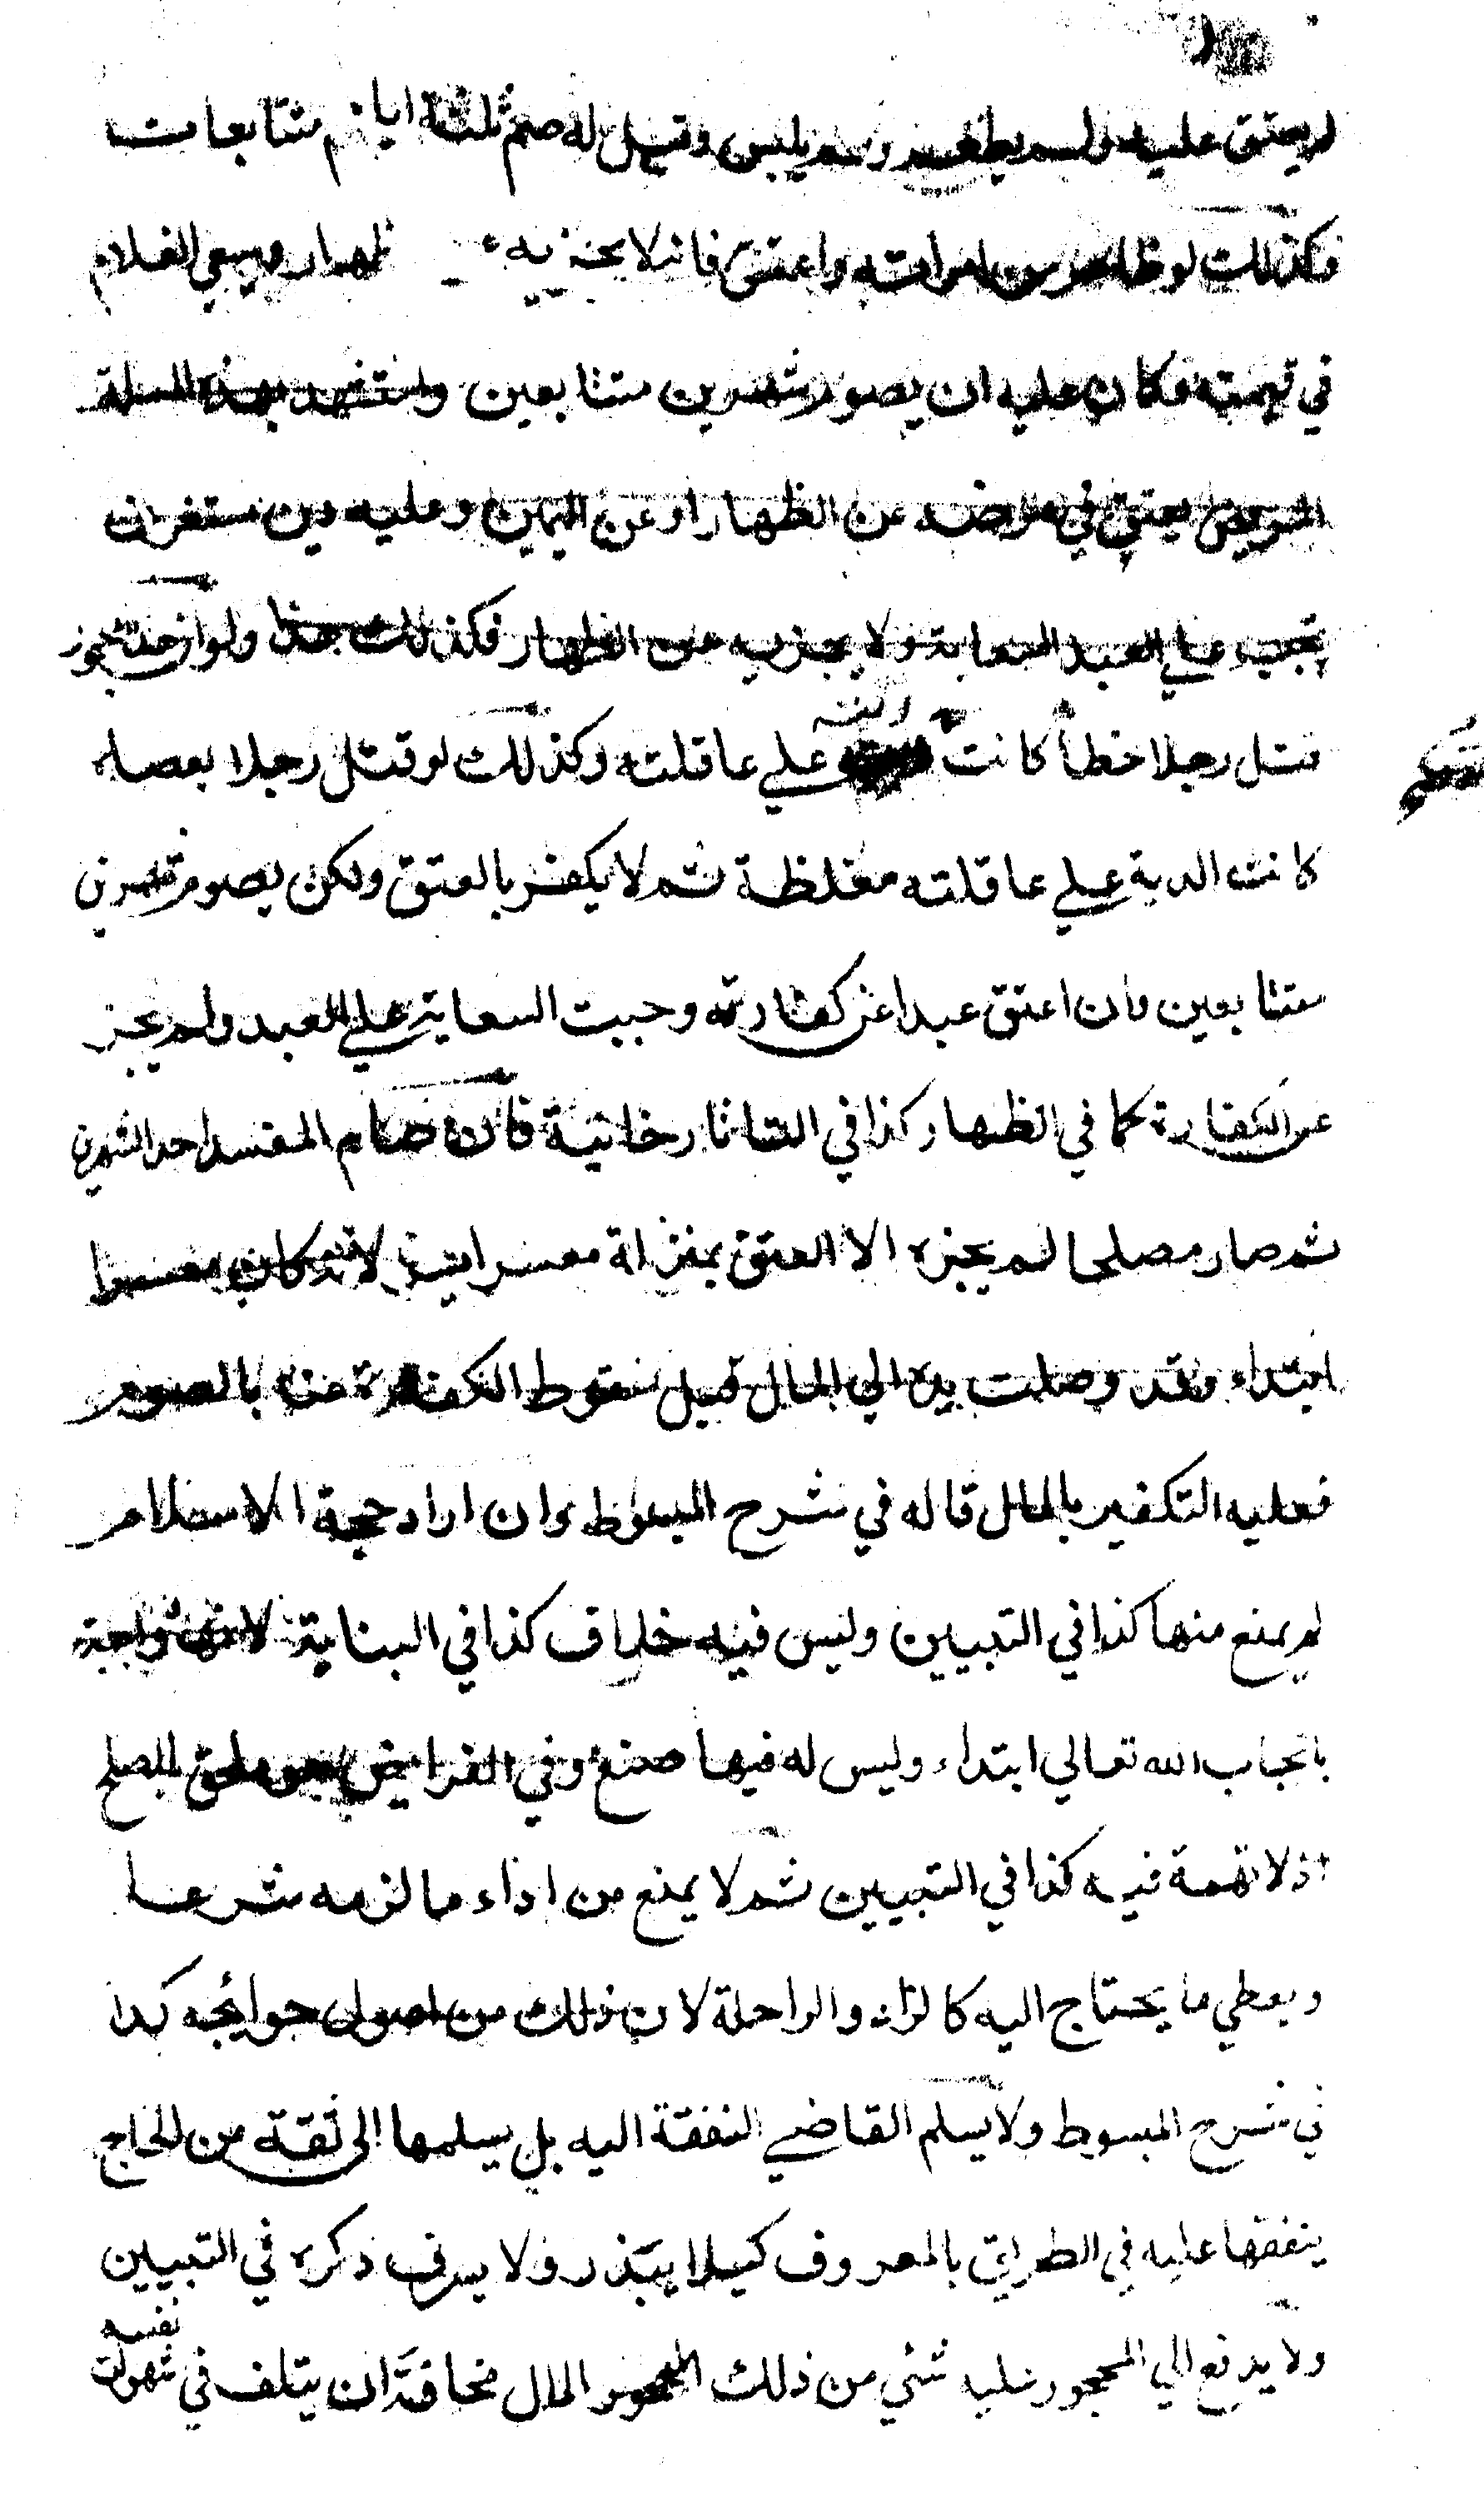 لم يعتق عليه ولم يطعم ولم يلبس وقيل له صم ثلثة ايام متتابعات
فكذلك لو ظاهر من امرأته واعتق فانه لا يجزيه ظهار ويسعي الغلام
في قيمته فكان عليه ان يصوم شهرين متتابعين واستشهد بهذه المسلة
المريض يعتق في مرضه عن الظهار او عن اليمين وعليه دين مستغرق
تجب علي العبد السعاية ولا يجزيه عن الظهار فكذلك هذا ولو ان محجور
قتل رجلا خطأ كانت الدية علي عاقلته وكذلك لو قتل رجلا بعصا
كانت الدية علي عاقلته مغلظة ثم لا يكفر بالعتق ولكن يصوم شهرين
متتابعين وان اعتق عبدا عن كفارته وجبت السعاية علي العبد ولم يجز
عن الكفارة كما في الظهار كذا في التاتارخانية فان صام المفسد احد الشهرين
ثم صار مصلحا لم يجزه الا العتق بمنزلة معسر ايسر لانه كان معسرا
ابتداء وقد وصلت يده الي المال قبل سقوط الكفارة عنه بالصوم
فعليه التكفير بالمال قاله في شرح المبسوط وان اراد حجة الاسلام
لم يمنع منها كذا في التبيين وليس فيه خلاف كذا في البناية لانها واجبة
بايجاب الله تعالي ابتداء وليس له فيها صنع وفي الفرايض هو ملحق بالمصلح
اذ لا تهمة فيه كذا في التبيين ثم لا يمنع من اداء ما لزمه شرعا
ويعطي ما يحتاج اليه كالزاد والراحلة لان ذلك من اصول حوائجه كذا
في شرح المبسوط ولا يسلم القاضي النفقة اليه بل يسلمها الى ثقة من الحاج
ينفقها عليه في الطريق بالمعروف كيلا يبذر ولا يسرف ذكره في التبيين
ولا يدفع الي المحجور عليه شئي من ذلك المال مخافة ان يتلف في شهوات نفسه